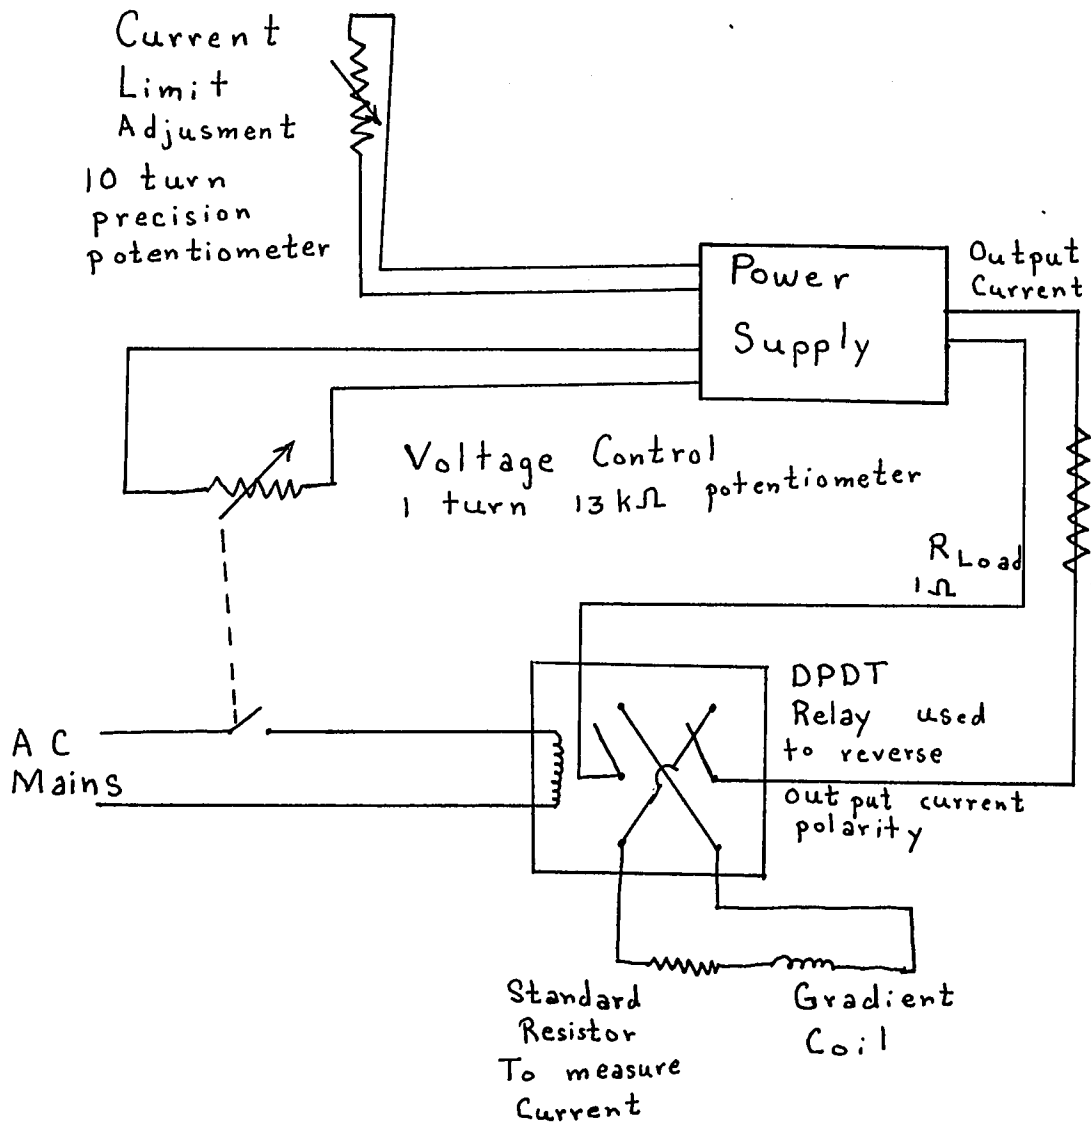 Current
Limit
Adjusment
10 turn
precision
potentiometer
Power
Supply
Output
Current
Voltage Control
1 turn 13 kΩ potentiometer
R Load
1Ω
AC
Mains
DPDT
Relay used
to reverse
output current
polarity
Standard
Resistor
To measure
Current
Gradient
Coil